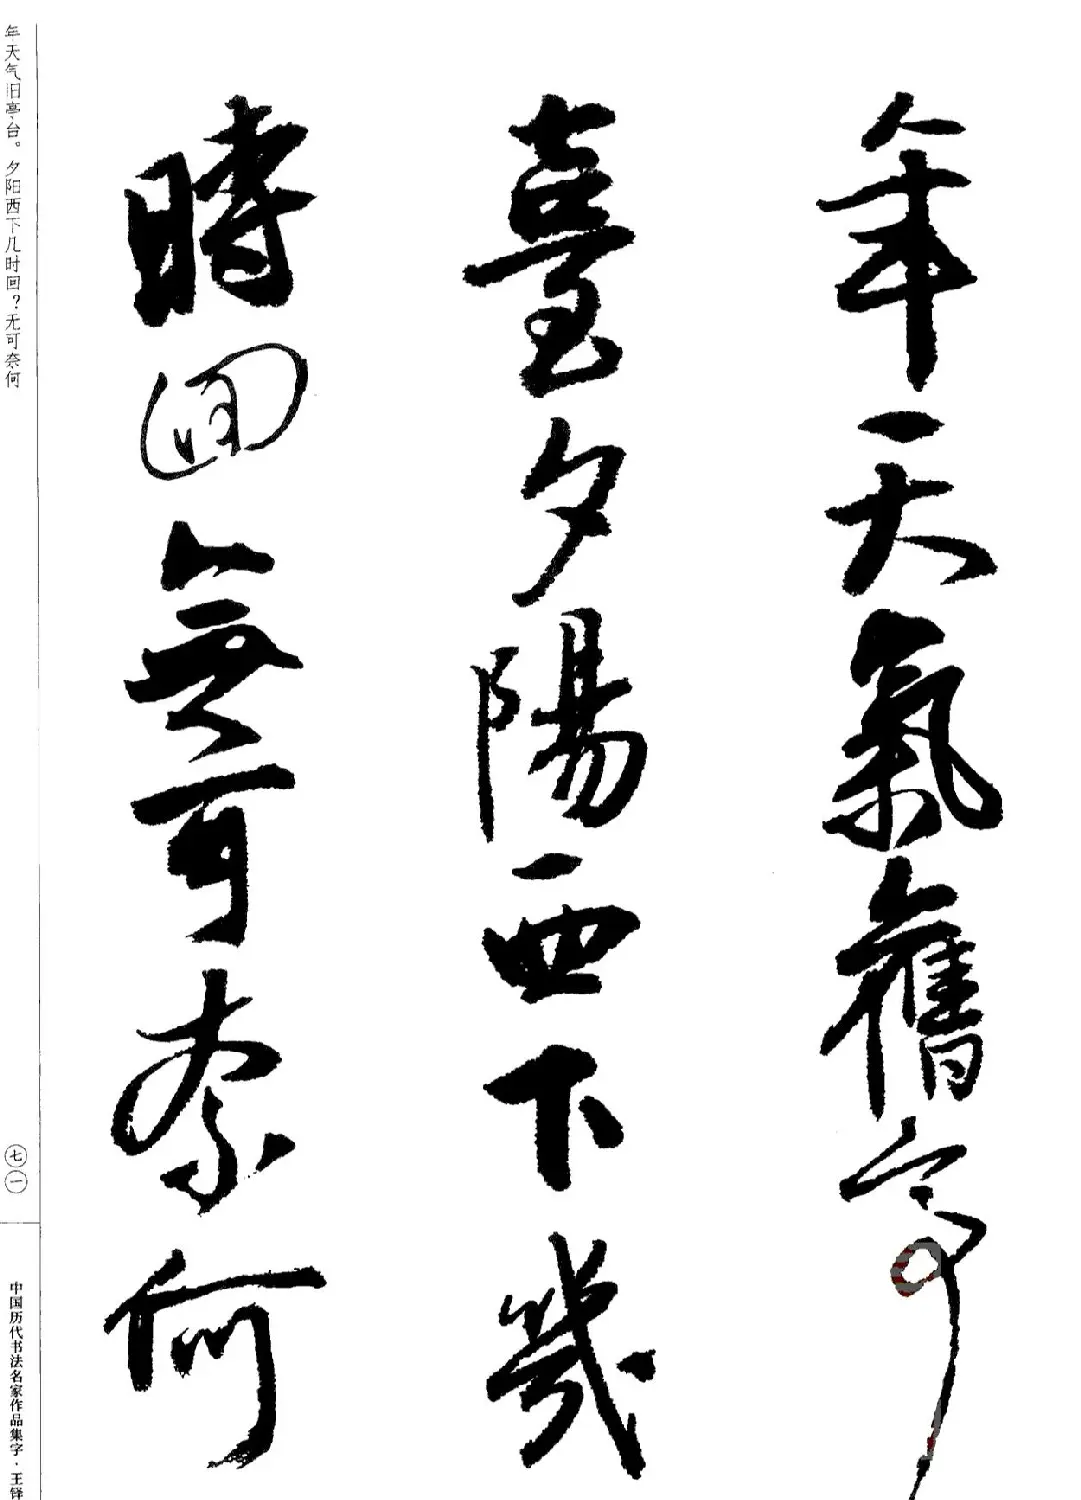 年天氣舊亭
臺夕陽西下幾
時回無可奈何
年天气旧亭台。夕阳西下几时回？无可奈何
七一
中国历代书法名家作品集字·王铎